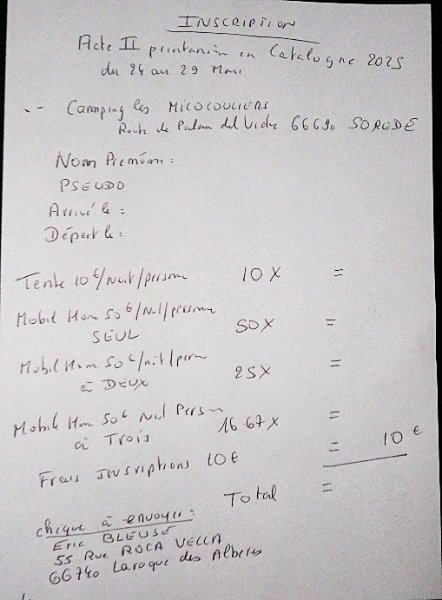 INSCRIPTION
Acte II printanier en Catalogne 2025
du 24 au 29 Mai
-- Camping les MICOCOULIERS
Route de Palau del Vidre 66690 SOREDE
Nom Prénom :
PSEUDO
Arrivé le :
Départ le :
Tente 10€/Nuit/person 10 X =
Mobil Hom 50€/Nuit/person
SEUL 50 X =
Mobil Hom 50€/nuit/pers
à DEUX 25 X =
Mobil Hom 50€ Nuit Person
à Trois 16.67 X =
Frais Inscriptions 10€ = 10€
Total =
chèque à envoyer :
Eric BLEUSE
55 Rue ROCA VECLA
66740 Laroque des Albères